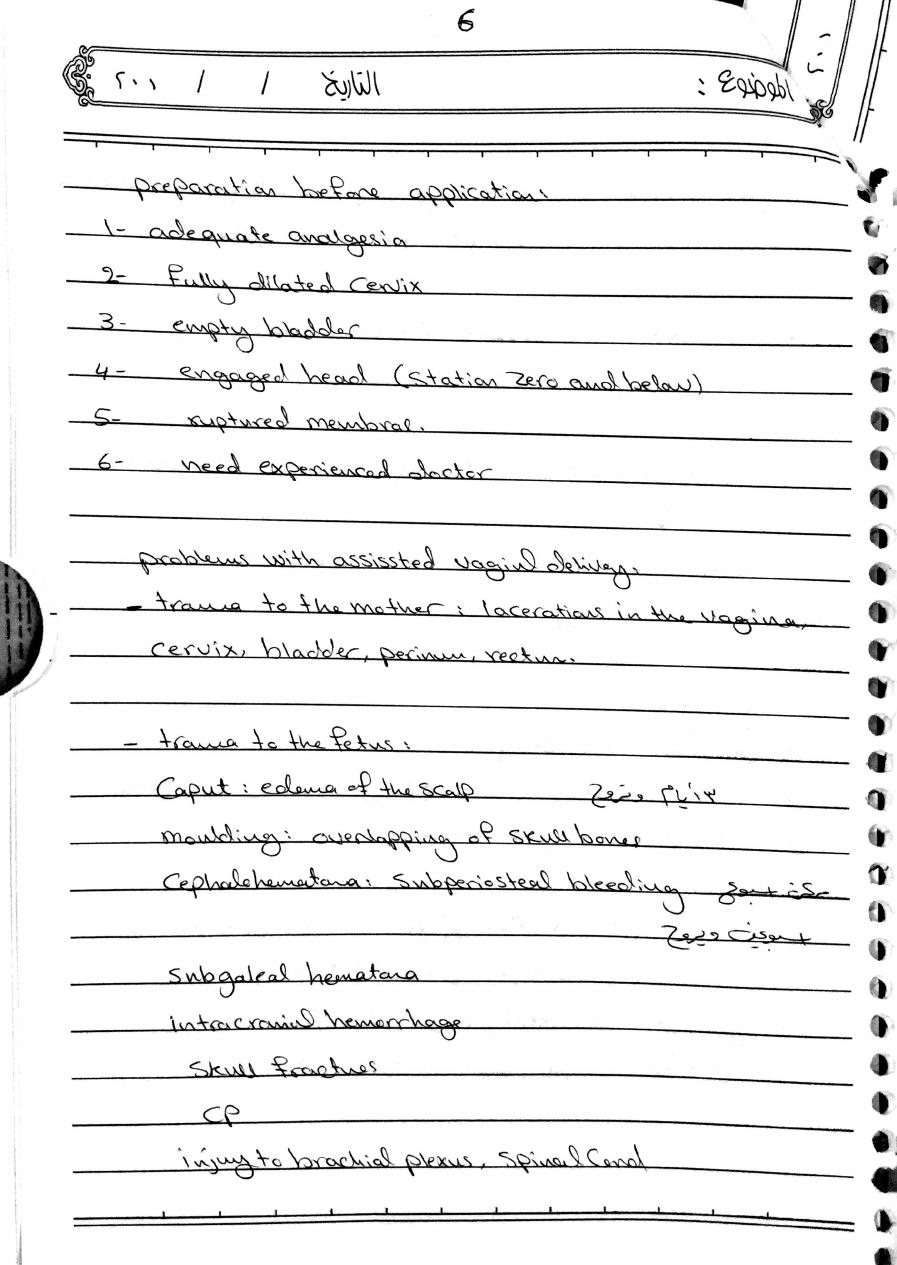 6
الموضوع : التاريخ / / ٢٠٠١
preparation before application:
1- adequate analgesia
2- fully dilated cervix
3- empty bladder
4- engaged head (station zero and below)
5- ruptured membrae.
6- need experienced doctor
problems with assissted vaginl delivey.
- trauma to the mother : lacerations in the vagina,
cervix, bladder, perinum, rectum.
- trauma to the fetus :
Caput : edema of the scalp ٣ أيام وتروح
moulding : overlapping of skull bones
Cephalohematoma : Subperiosteal bleeding
اسبوعين وبروح
Subgaleal hematoma
intracranial hemorrhage
Skull fractures
CP
injury to brachial plexus, spinal Cord